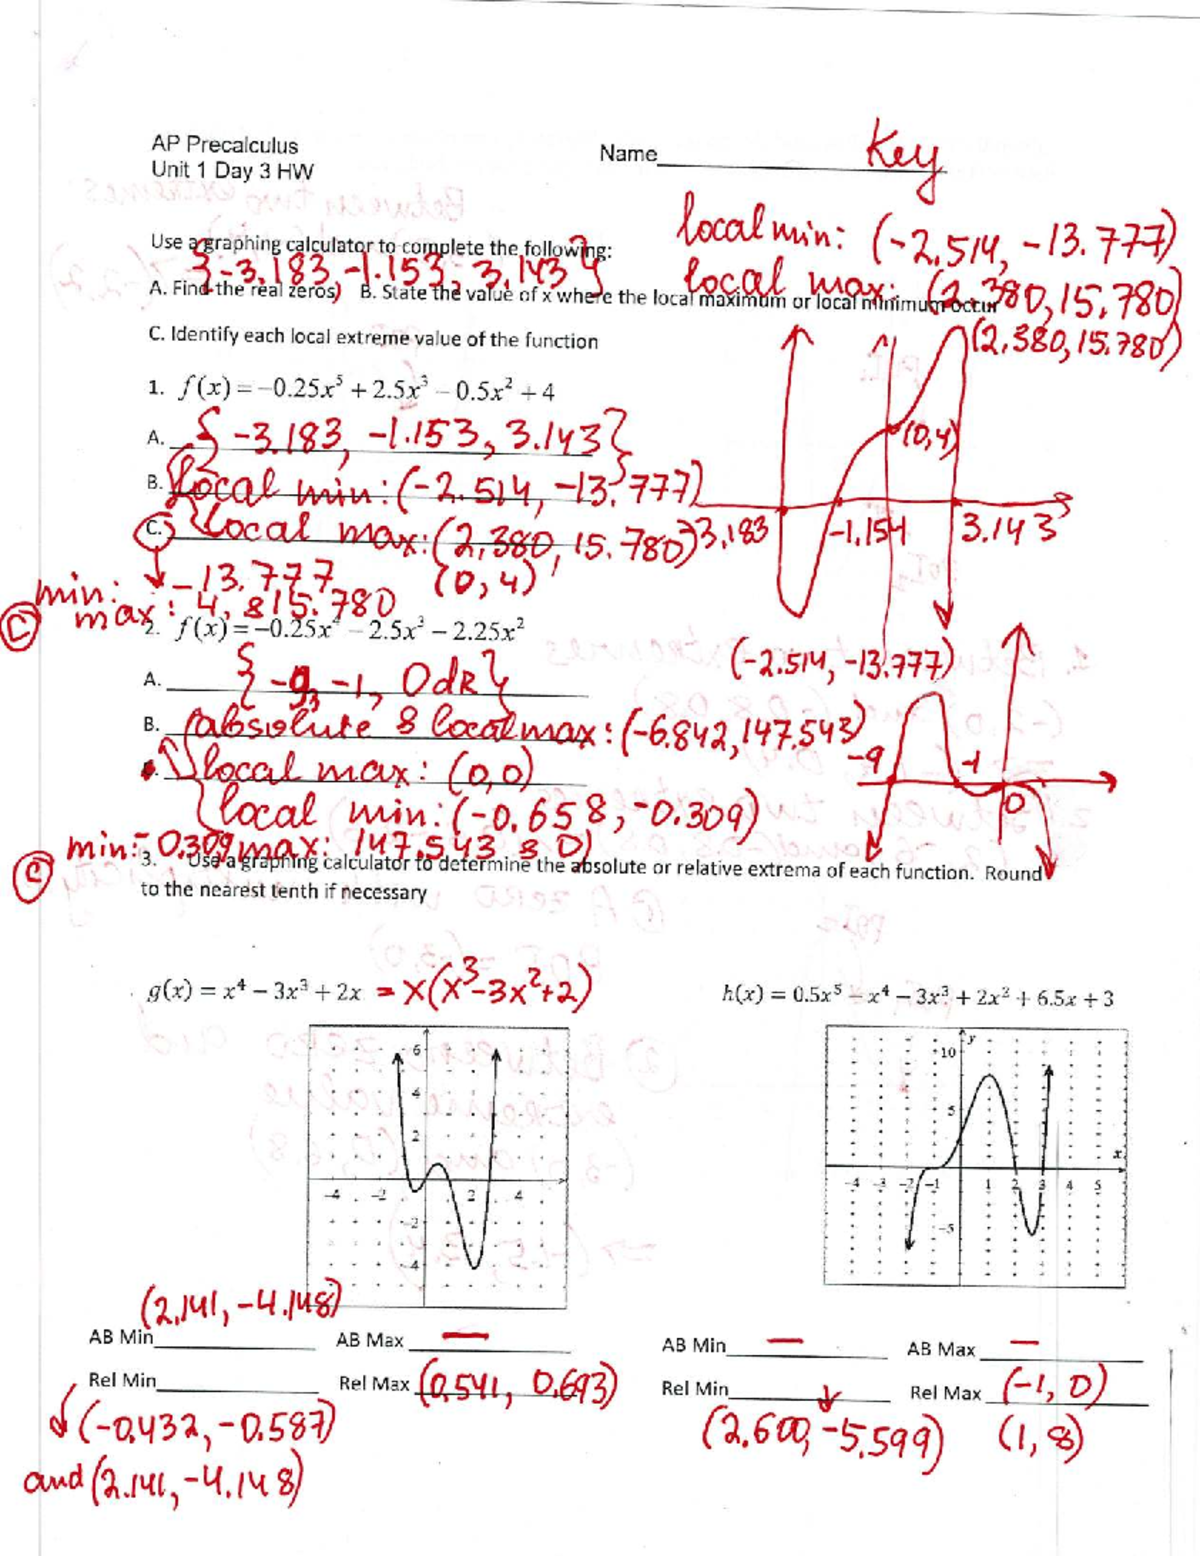 AP Precalculus
Unit 1 Day 3 HW
Name Key
local min: (-2.514, -13.777)
local max: (2.380, 15.780)
Use a graphing calculator to complete the following:
{-3.183, -1.153, 3.143}
A. Find the real zeros) B. State the value of x where the local maximum or local minimum occur
C. Identify each local extreme value of the function
(2.380, 15.780)
1. f(x) = -0.25x⁵ + 2.5x³ - 0.5x² + 4
A. {-3.183, -1.153, 3.143}
(0,4)
B. local min: (-2.514, -13.777)
C. local max: (2.380, 15.780)
(0, 4)
-3.183 -1.154 3.143
min: -13.777
C max: 4, & 15.780
2. f(x) = -0.25x⁴ - 2.5x³ - 2.25x²
(-2.514, -13.777)
A. {-9, -1, 0dR}
B. absolute & local max: (-6.842, 147.543)
local max: (0,0)
local min: (-0.658, -0.309)
-9 -1 0
C min: -0.309 max: 147.543 & 0
3. Use a graphing calculator to determine the absolute or relative extrema of each function. Round
to the nearest tenth if necessary
g(x) = x⁴ - 3x³ + 2x = x(x³-3x²+2)
h(x) = 0.5x⁵ - x⁴ - 3x³ + 2x² + 6.5x + 3
6
4
2
-4 -2 2 4
-2
-4
y
10
5
x
-4 -3 -2 -1 1 2 3 4 5
-5
(2.141, -4.148)
AB Min AB Max —
AB Min — AB Max —
Rel Min Rel Max (0.541, 0.693)
Rel Min Rel Max (-1, 0)
(-0.432, -0.587)
and (2.141, -4.148)
(2.600, -5.599) (1, 8)